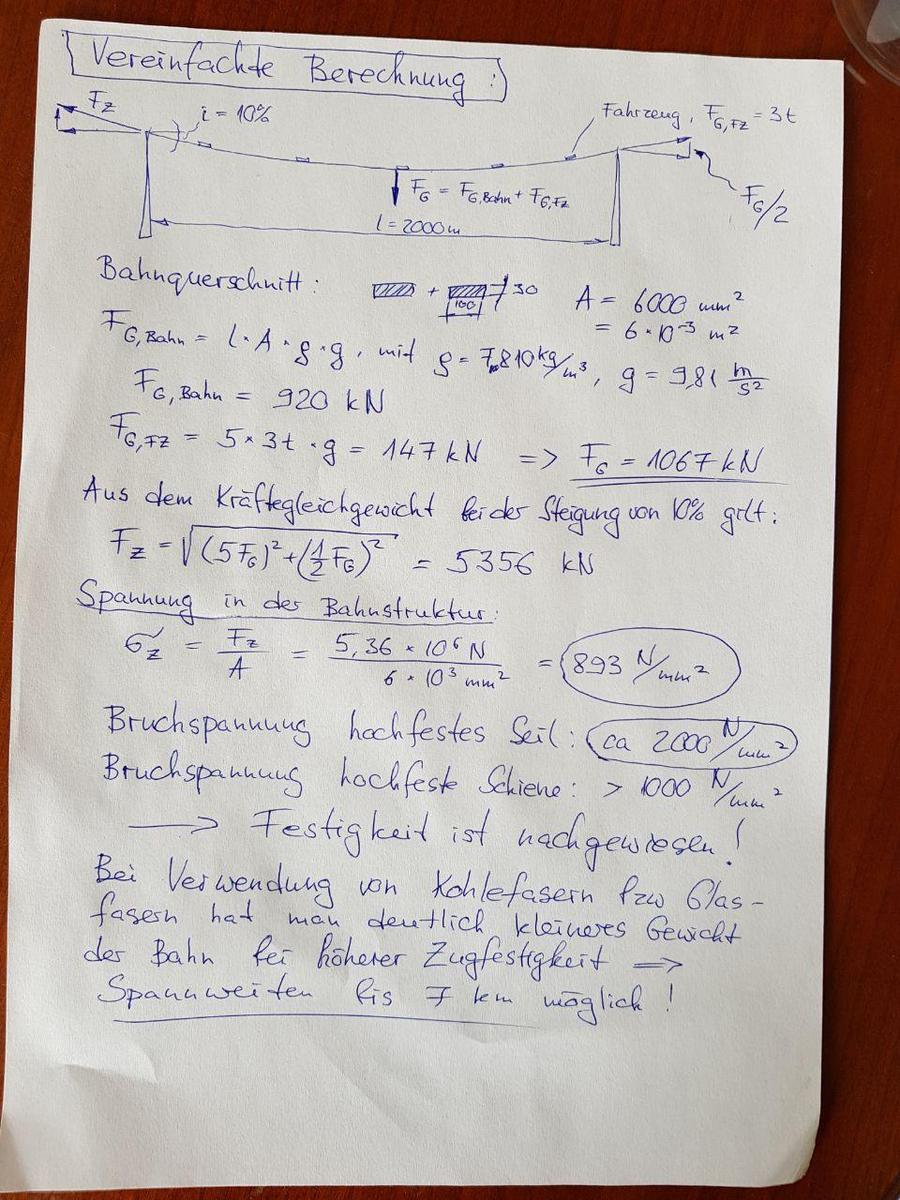 Vereinfachte Berechnung :
F_Z
i = 10%
Fahrzeug, F_G,FZ = 3t
F_G = F_G,Bahn + F_G,FZ
F_G/2
l = 2000m
Bahnquerschnitt : + 100 30 A = 6000 mm²
= 6 × 10⁻³ m²
F_G,Bahn = l · A · ρ · g, mit ρ = 7.810 kg/m³, g = 9,81 m/s²
F_G,Bahn = 920 kN
F_G,FZ = 5 × 3t · g = 147 kN => F_G = 1067 kN
Aus dem Kräftegleichgewicht bei der Steigung von 10% gilt:
F_Z = √((5F_G)² + (1/2 F_G)²) = 5356 kN
Spannung in der Bahnstruktur:
σ_Z = F_Z / A = 5,36 × 10⁶ N / 6 × 10³ mm² = 893 N/mm²
Bruchspannung hochfestes Seil: ca 2000 N/mm²
Bruchspannung hochfeste Schiene: > 1000 N/mm²
→ Festigkeit ist nachgewiesen!
Bei Verwendung von Kohlefasern bzw Glas-
fasern hat man deutlich kleineres Gewicht
der Bahn bei höherer Zugfestigkeit =>
Spannweiten bis 7 km möglich!